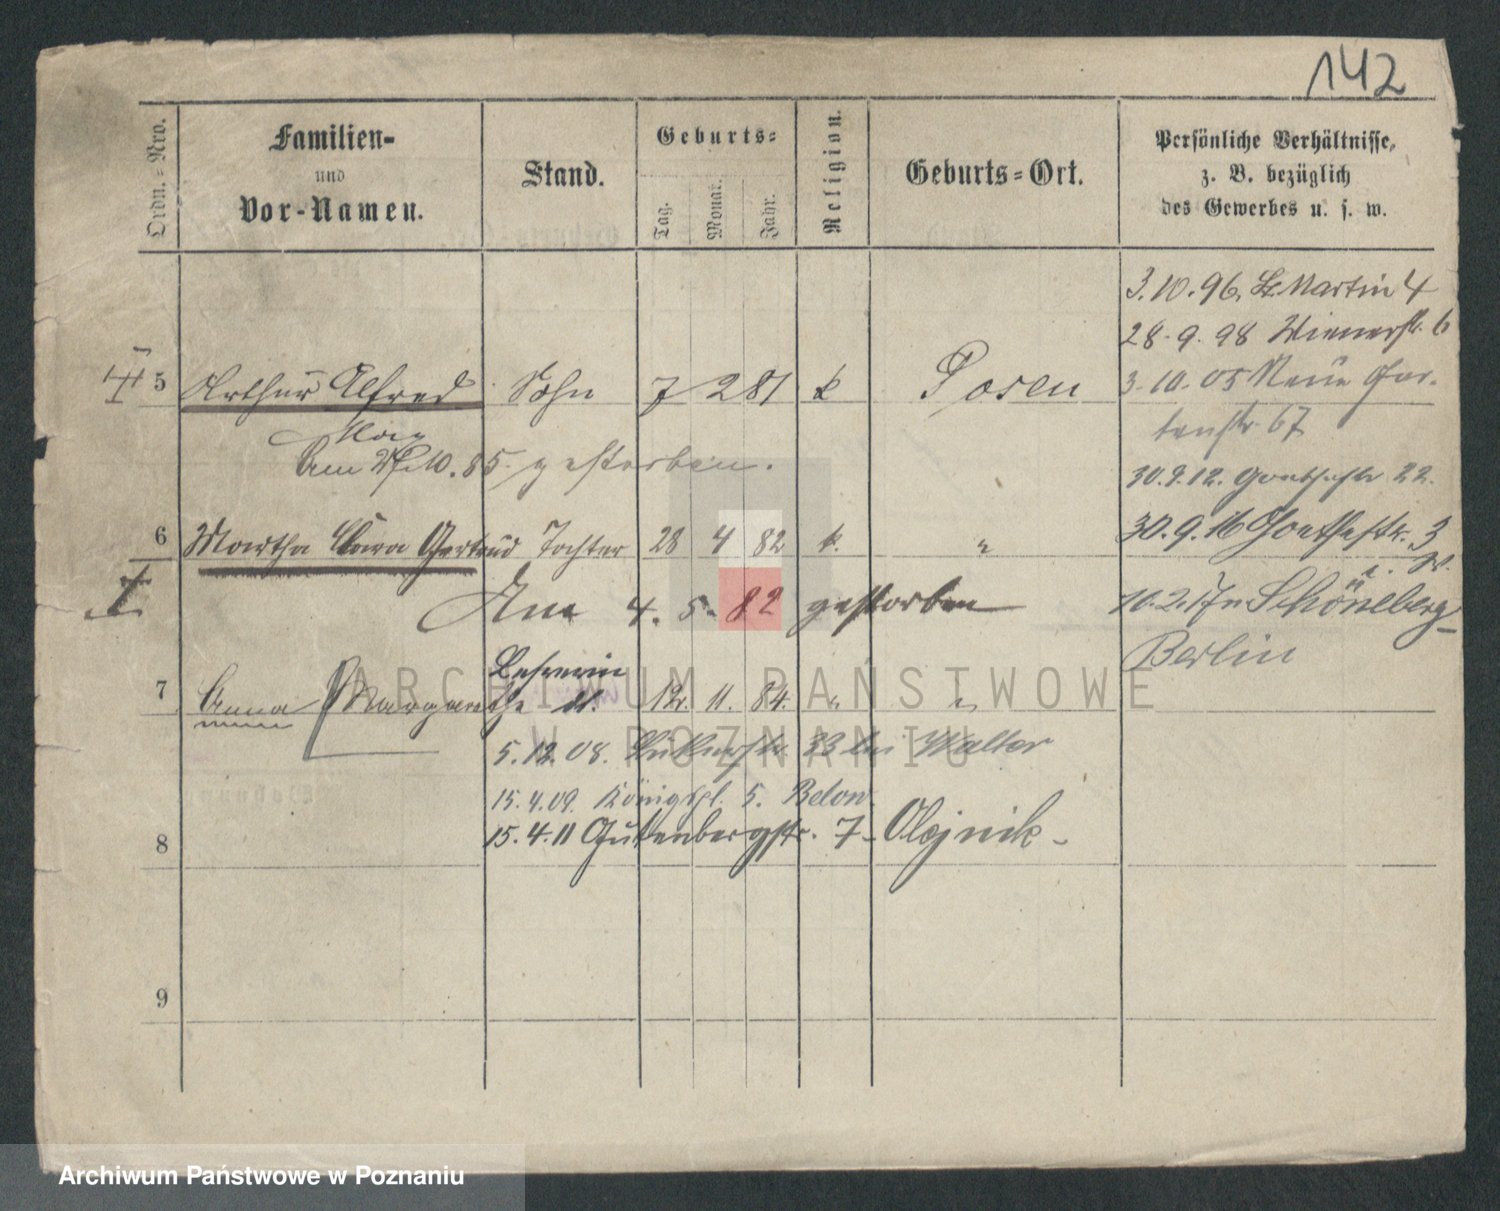 142
Ordn.-Nro.
Familien-
und
Vor-Namen.
Stand.
Geburts-
Tag.
Monat.
Jahr.
Religion.
Geburts-Ort.
Persönliche Verhältnisse,
z. B. bezüglich
des Gewerbes u. s. w.
3.10.96. St. Martin 4
28.9.98 Wienerstr. 6
5 Arthur Alfred Sohn 7 2 81 k Posen
3.10.05 Neue Gar-
tenstr. 67
Max
Am 10.85. gestorben.
30.9.12. Goethestr 22.
30.9.16 Goethestr. 3
6 Martha Clara Gertrud Tochter 28 4 82 k. "
Am 4.5.82 gestorben
10.2.17 n Schöneberg
Berlin
Lehrerin
7 Anna Margarethe 12. 11. 84. " "
5.12.08. 33 bei Walter
15.4.09. Königspl. 5. Below.
15.4.11 Gutenbergstr. 7 - Olejnik -
8
9
ARCHIWUM PAŃSTWOWE
W POZNANIU
Archiwum Państwowe w Poznaniu